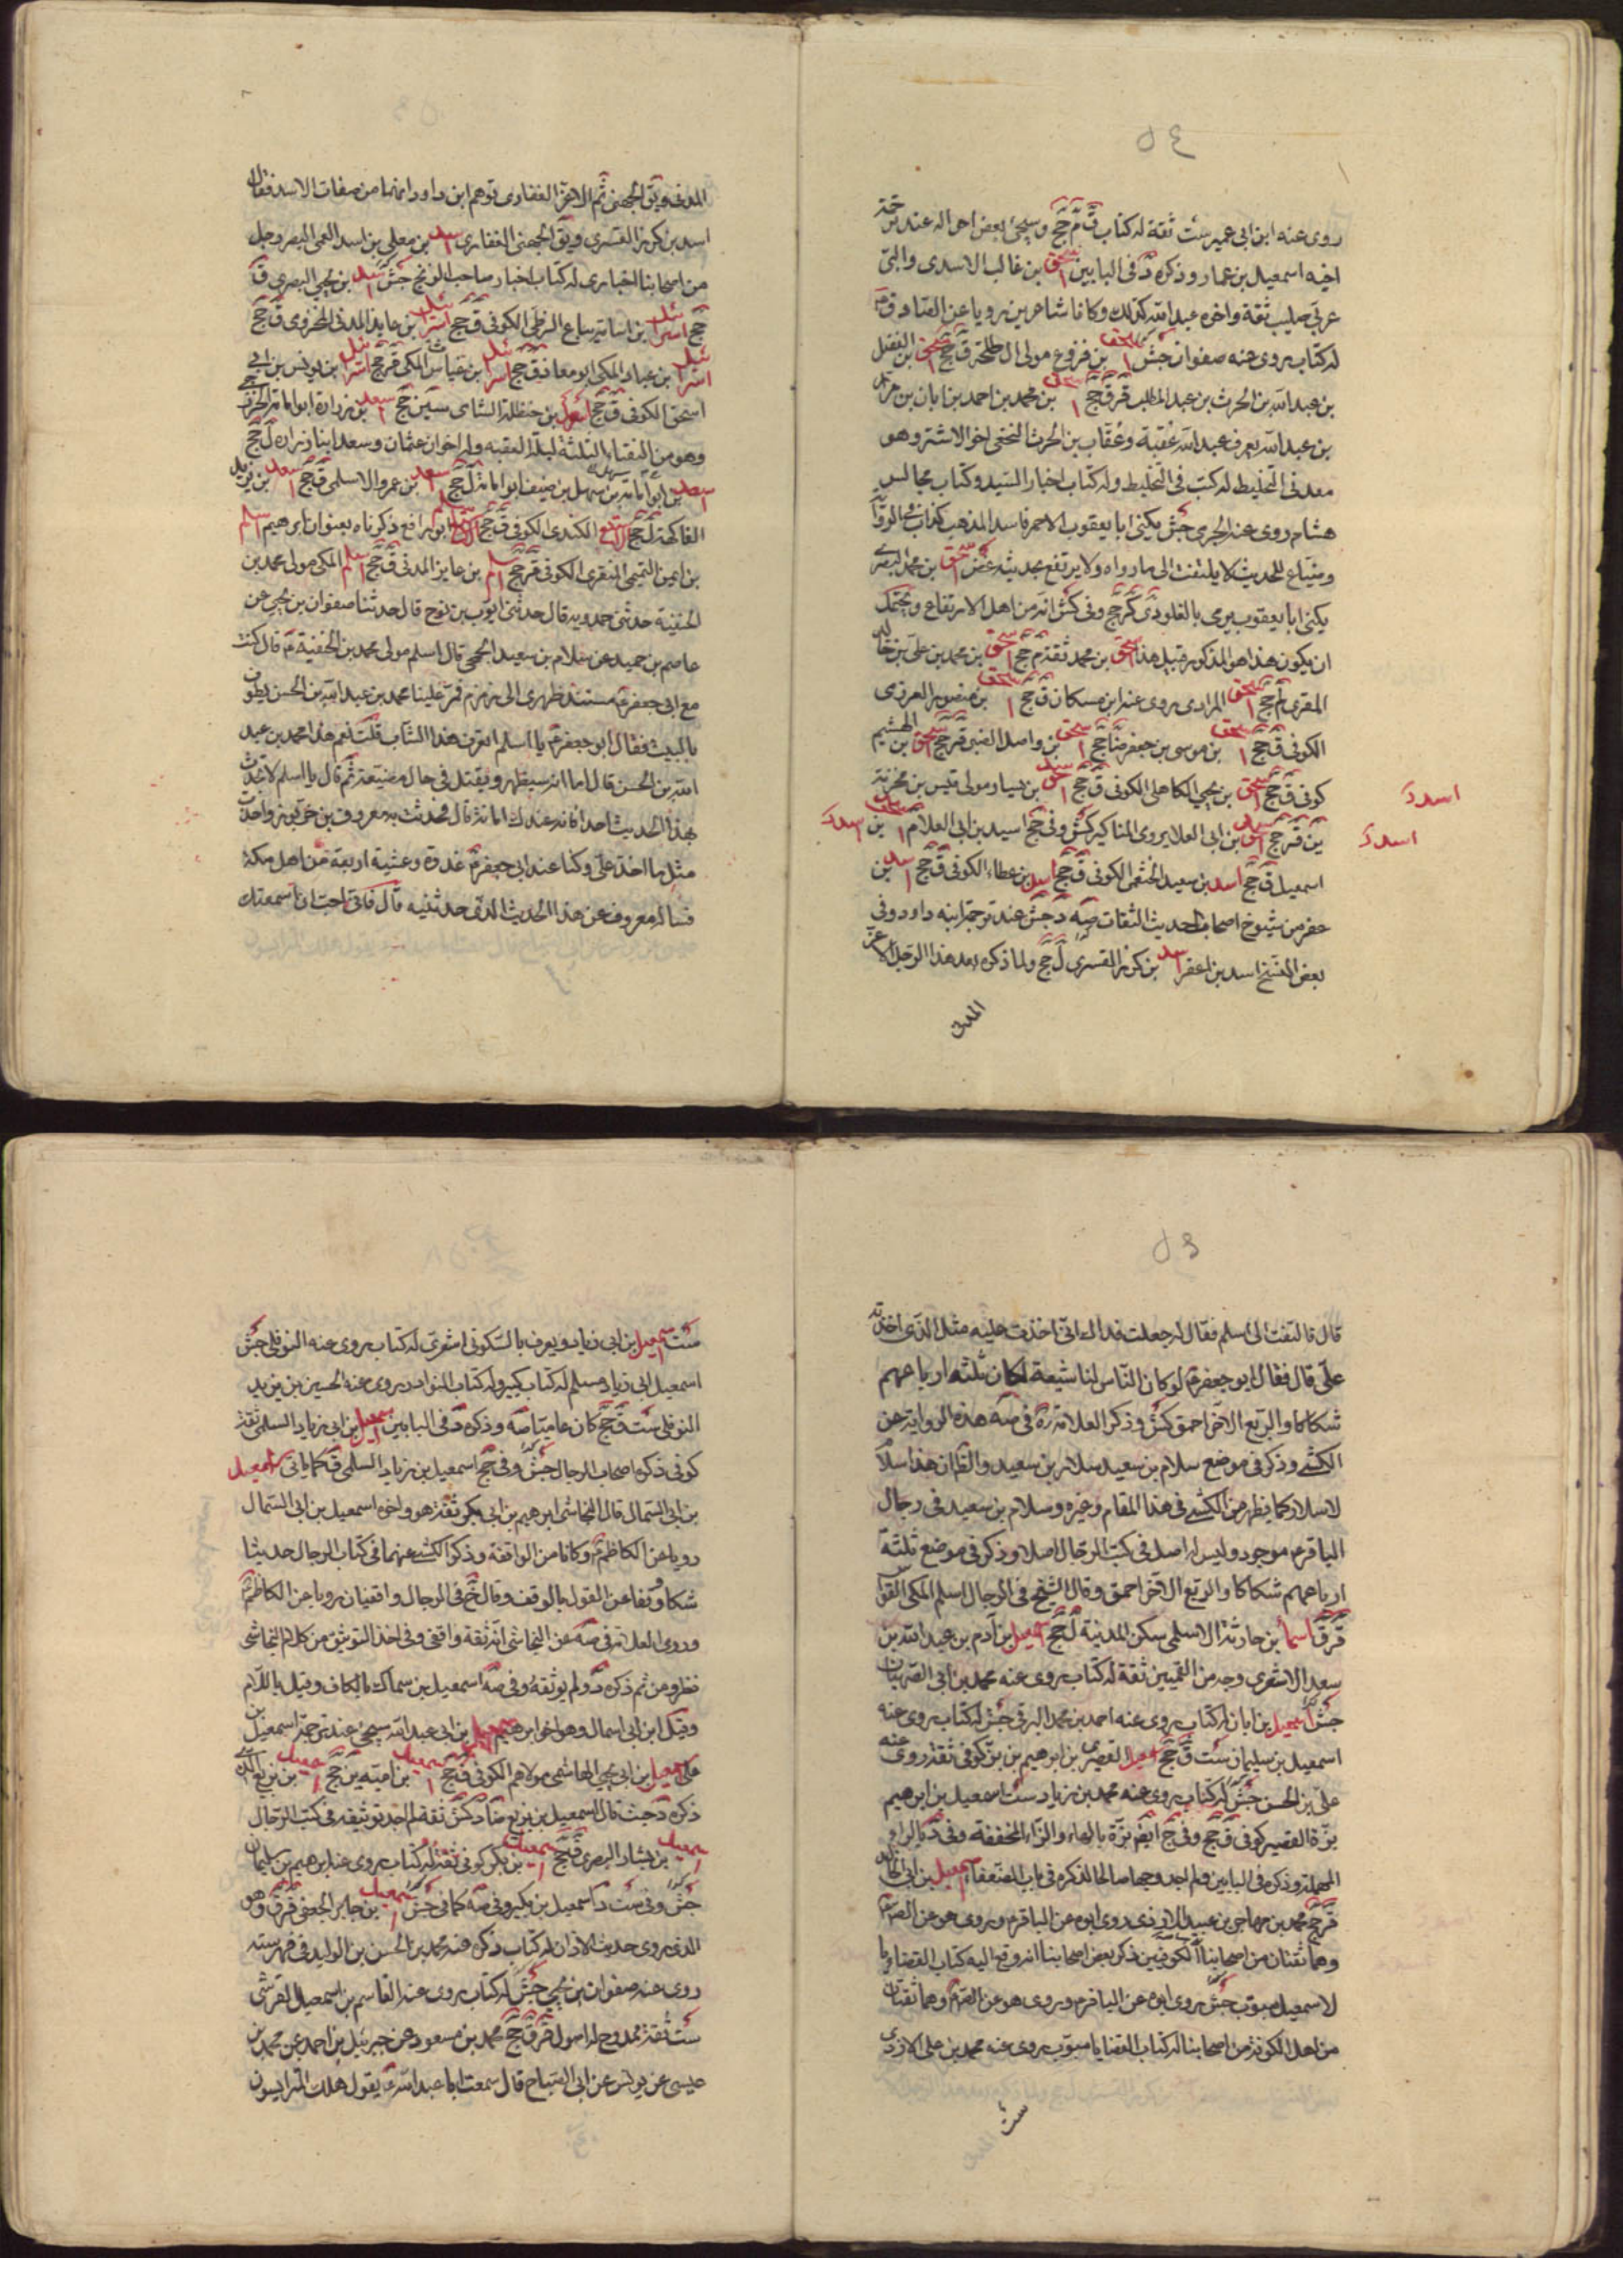 ٥٤
روى عنه ابن ابى عمير ست ثقة له كتاب ق م جخ وسيجئ بعض احواله عند ترجمة
اخيه اسمعيل بن عمار وذكره د فى البابين اسحق بن غالب الاسدى والبى
عربى صليب ثقة واخوه عبد الله كذلك وكانا شاعرين رويا عن الصادق ع
له كتاب يروى عنه صفوان جش اسحق بن فروخ مولى ال طلحة ق جخ اسحق بن الفضل
بن عبد الله بن الحرث بن عبد المطلب قر ق جخ اسحق بن محمد بن احمد بن ابان بن مرار
بن عبد الله يعرف عبد الله عقبة وعقاب بن الحرث النخعى اخو الاشتر وهو
معدن التخليط له كتب فى التخليط وله كتاب اخبار السيد وكتاب مجالس
هشام روى عنه الجرمى جش يكنى ابا يعقوب الاحمر فاسد المذهب كذاب فى الرواية
وضاع للحديث لا يلتفت الى ما رواه ولا يرتفع بحديثه غض اسحق بن محمد البصرى
يكنى ابا يعقوب يرمى بالغلو دى كر جخ وفى كش انه من اهل الارتفاع ويحتمل
ان يكون هذا هو المذكور قبيل هذا اسحق بن محمد ثقة م جخ اسحق بن محمد بن على بن خالد
المقرى لم جخ اسحق المرادى يروى عنه ابن مسكان ق جخ اسحق بن منصور العرزمى
الكوفى ق جخ اسحق بن موسى بن جعفر ضا جخ اسحق بن واصل الضبى قر جخ اسحق بن الهيثم
كوفى ق جخ اسحق بن يحيى الكاهلى الكوفى ق جخ اسحق بن يسار مولى قيس بن مخرمة
ين قر جخ اسد بن ابى العلا يروى المناكير كش وفى جخ اسيد بن ابى العلا م اسحق بن اسد
اسد
اسد
اسمعيل ق جخ اسد بن سعيد الخثعمى الكوفى ق جخ اسد بن عطاء الكوفى ق جخ اسد بن
حفر من شيوخ اصحاب الحديث الثقات صه د جش عند ترجمة ابنه داود وفى
بعض النسخ اسد بن اعفر اسد بن كرز القسرى ل جخ ولما ذكره بعد هذا الرجل الاغر
المدنى
المدنى ويق الجهنى ثم الاغر الغفارى توهم ابن داود انهما من صفات الاسد فقال
اسد بن كرز القسرى ويق الجهنى الغفارى اسد بن معلى بن اسد العمى البصرى رجل
من اصحابنا اخبارى له كتاب اخبار صاحب الزنج جش اسد بن يحيى البصرى ق
جخ اسرائيل بن اسامة بياع الزطى الكوفى ق جخ اسرائيل بن عايذ المدنى المخزومى ق جخ
اسرائيل بن عباد المكى ابو معاذ ق جخ اسرائيل بن غياث المكى قر جخ اسرائيل بن يونس بن ابى
اسحق الكوفى ق جخ اسعد بن حنظلة الشامى سين جخ اسعد بن زرارة ابو امامة الخزرجى
وهو من النقباء الثلثة ليلة العقبه وله اخوان عثمان وسعد ابنا زرارة ل جخ
اسعد بن ابو امامة بن سهل بن حنيف ابو امامة ل جخ اسعد بن عمرو الاسلمى ق جخ اسعد بن يزيد
الفاكهة ل جخ الاسقع الكندى الكوفى ق جخ اسلم ابو رافع ذكرناه بعنوان ابرهيم اسلم
بن ايمن التميمى المنقرى الكوفى قر جخ اسلم بن عايذ المدنى ق جخ اسلم المكى مولى محمد بن
الحنفية حدثنى حمدويه قال حدثنى ايوب بن نوح قال حدثنا صفوان بن يحيى عن
عاصم بن حميد عن سلام بن سعيد الجمحى قال اسلم مولى محمد بن الحنفية م قال كنت
مع ابى جعفر ع مستند ظهرى الى زمزم فمر علينا محمد بن عبد الله بن الحسن يطوف
بالبيت فقال ابو جعفر ع يا اسلم اتعرف هذا الشاب قلت نعم هذا محمد بن عبد
الله بن الحسن قال اما انه سيظهر ويقتل فى حال مضيعة ثم قال يا اسلم لا تحدث
بهذا الحديث احدا فانه عندك امانة قال فحدثت به معروف بن خربوز واخذت
مثل ما اخذ على وكنا عند ابى جعفر ع غدوة وعشية اربعة من اهل مكة
فساله معروف عن هذا الحديث الذى حدثنيه قال فانى احب ان اسمعه منك
قال فالتفت الى اسلم فقال له جعلت فداك انى اخذت عليه مثل الذى اخذته
على قال فقال ابو جعفر ع لو كان الناس لنا شيعة لكان ثلثه ارباعهم
شكاكا والربع الاخر احمق كش وذكر العلامة ره فى صه هذه الرواية عن
الكشى وذكر فى موضع سلام بن سعيد سلار بن سعيد والظ ان هذا سلام
لا سلار كما يظهر من الكشى فى هذا المقام وغيره وسلام بن سعيد فى رجال
الباقر ع موجود وليس له اصل فى كتب الرجال اصلا وذكر فى موضع ثلثة
ارباعهم شكاكا والربع الاخر احمق وقال الشيخ فى الرجال اسلم المكى القواس
قر ق اسما بن حارثة الاسلمى سكن المدينة ل جخ اسمعيل بن آدم بن عبد الله بن
سعد الاشعرى وجه من القميين ثقة له كتاب يروى عنه محمد بن ابى الصهبان
جش اسمعيل بن ابان له كتاب يروى عنه احمد بن محمد البرقى جش له كتاب يروى عنه
اسمعيل بن سليمان ست ق جخ اسمعيل القصرى بن ابرهيم بن بز كوفى ثقة روى عنه
على بن الحسن جش له كتاب يروى عنه محمد بن زياد ست اسمعيل بن ابرهيم
بزة القصير كوفى ق جخ وفى جخ ايضم بزة بالهاء والزاء المخففة وفى د بالراء
المهملة وذكره فى البابين ولم اجد وجها صالحا لذكره فى باب الضعفاء اسمعيل بن ابى خالد
قر جخ محمد بن مهاجر بن عبيد الازدى روى ابوه عن الباقر م وروى هو عن الص ع
وهما ثقتان من اصحابنا الكوفيين ذكر بعض اصحابنا انه وقع اليه كتاب القضايا
لاسمعيل مبوب جش روى ابوه عن الباقر م وروى هو عن الص م وهما ثقتان
من اهل الكوفة من اصحابنا له كتاب القضايا مبوب يروى عنه محمد بن على الازدى
ست
ست اسمعيل بن ابى زياد ويعرف بالسكونى الشعرى له كتاب يروى عنه النوفلى جش
اسمعيل ابى زياد مسلم له كتاب كبير وله كتاب النوادر يروى عنه الحسين بن يزيد
النوفلى ست ق جخ كان عاميا صه وذكره د فى البابين اسمعيل بن ابى زياد السلمى ثقة
كوفى ذكره اصحاب الرجال جش وفى جخ اسمعيل بن زياد السلمى ق كما ياتى اسمعيل
بن ابى السمال قال النجاشى ابرهيم بن ابى بكر ثقة هو واخوه اسمعيل بن ابى السمال
رويا عن الكاظم ع وكانا من الواقفة وذكر الكشى عنهما فى كتاب الرجال حديثا
شكا ووقفا عن القول بالوقف وقال خ فى الرجال واقفيان رويا عن الكاظم ع
وروى العلامة فى صه عن النجاشى انه ثقة واقفى وفى اخذ التوثيق من كلام النجاشى
نظر ومن ثم ذكره د ولم يوثقه وفى صه اسمعيل بن سماك بالكاف وقيل باللام
وقيل ابن ابى اسمال وهو اخو ابرهيم اسمعيل بن ابى عبد الله سيجئ عند ترجمة اسمعيل بن
على اسمعيل بن ابى يحيى الهاشمى مولاهم الكوفى ق جخ اسمعيل بن امية ين جخ اسمعيل بن بزيع الذى
ذكره د حيث قال اسمعيل بن بزيع ضا د كش ثقة لم اجد توثيقه فى كتب الرجال
اسمعيل بن بشار البصرى ق جخ اسمعيل بن بكر كوفى ثقة له كتاب يروى عنه ابرهيم بن سليمان
جش وفى ست د اسمعيل بن بكير وفى صه كما فى جش اسمعيل بن جابر الجعفى قر ق وهو
الذى روى حديث الاذان له كتاب ذكره عنه محمد بن الحسن بن الوليد فى فهرسته
روى عنه صفوان بن يحيى جش له كتاب يروى عنه القاسم بن اسمعيل القرشى
ست ثقة ممدوح له اصول قر ق جخ محمد بن مسعود عن جبرئيل بن احمد عن محمد بن
عيسى عن يونس عن ابى الصباح قال سمعت ابا عبد الله ع يقول هلك المترايسون